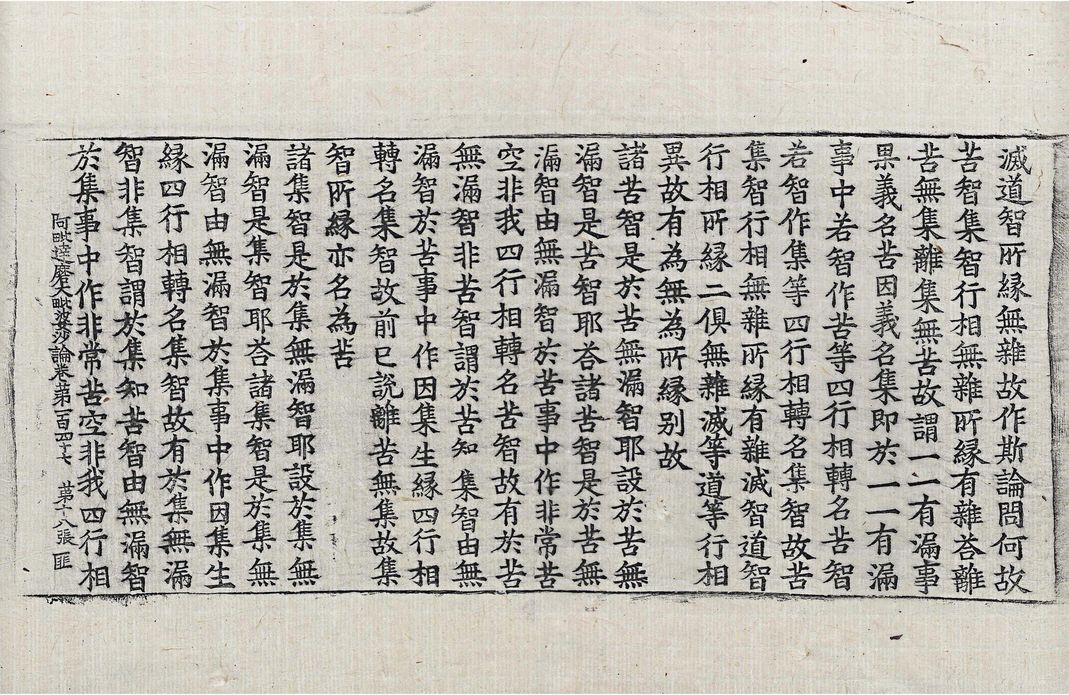 滅道智所縁無雜故作斯論問何故
苦智集智行相無雜所縁有雜荅離
苦無集離集無苦故謂一一有漏事
果義名苦因義名集即於一一有漏
事中若智作苦等四行相轉名苦智
若智作集等四行相轉名集智故苦
集智行相無雜所縁有雜滅智道智
行相所縁二俱無雜滅等道等行相
異故有為無為所縁別故
諸苦智是於苦無漏智耶設於苦無
漏智是苦智耶荅諸苦智是於苦無
漏智由無漏智於苦事中作非常苦
空非我四行相轉名苦智故有於苦
無漏智非苦智謂於苦知集智由無
漏智於苦事中作因集生縁四行相
轉名集智故前已說離苦無集故集
智所縁亦名為苦
諸集智是於集無漏智耶設於集無
漏智是集智耶荅諸集智是於集無
漏智由無漏智於集事中作因集生
縁四行相轉名集智故有於集無漏
智非集智謂於集知苦智由無漏智
於集事中作非常苦空非我四行相
阿毗達磨大毗婆沙論卷苐百四十七 苐十八張 匪